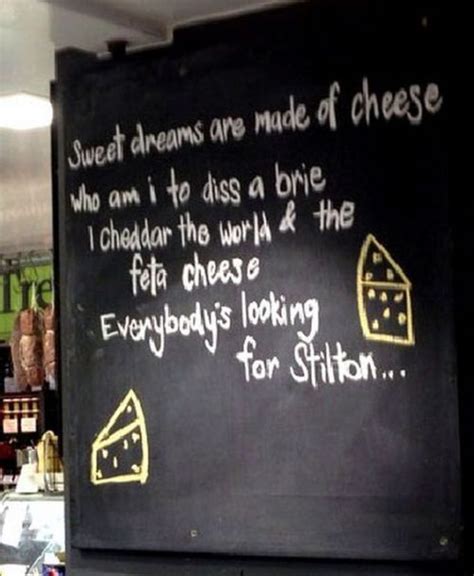 Sweet dreams are made of cheese
who am i to diss a brie
I cheddar the world & the
feta cheese
Everybody's looking
for Stilton...